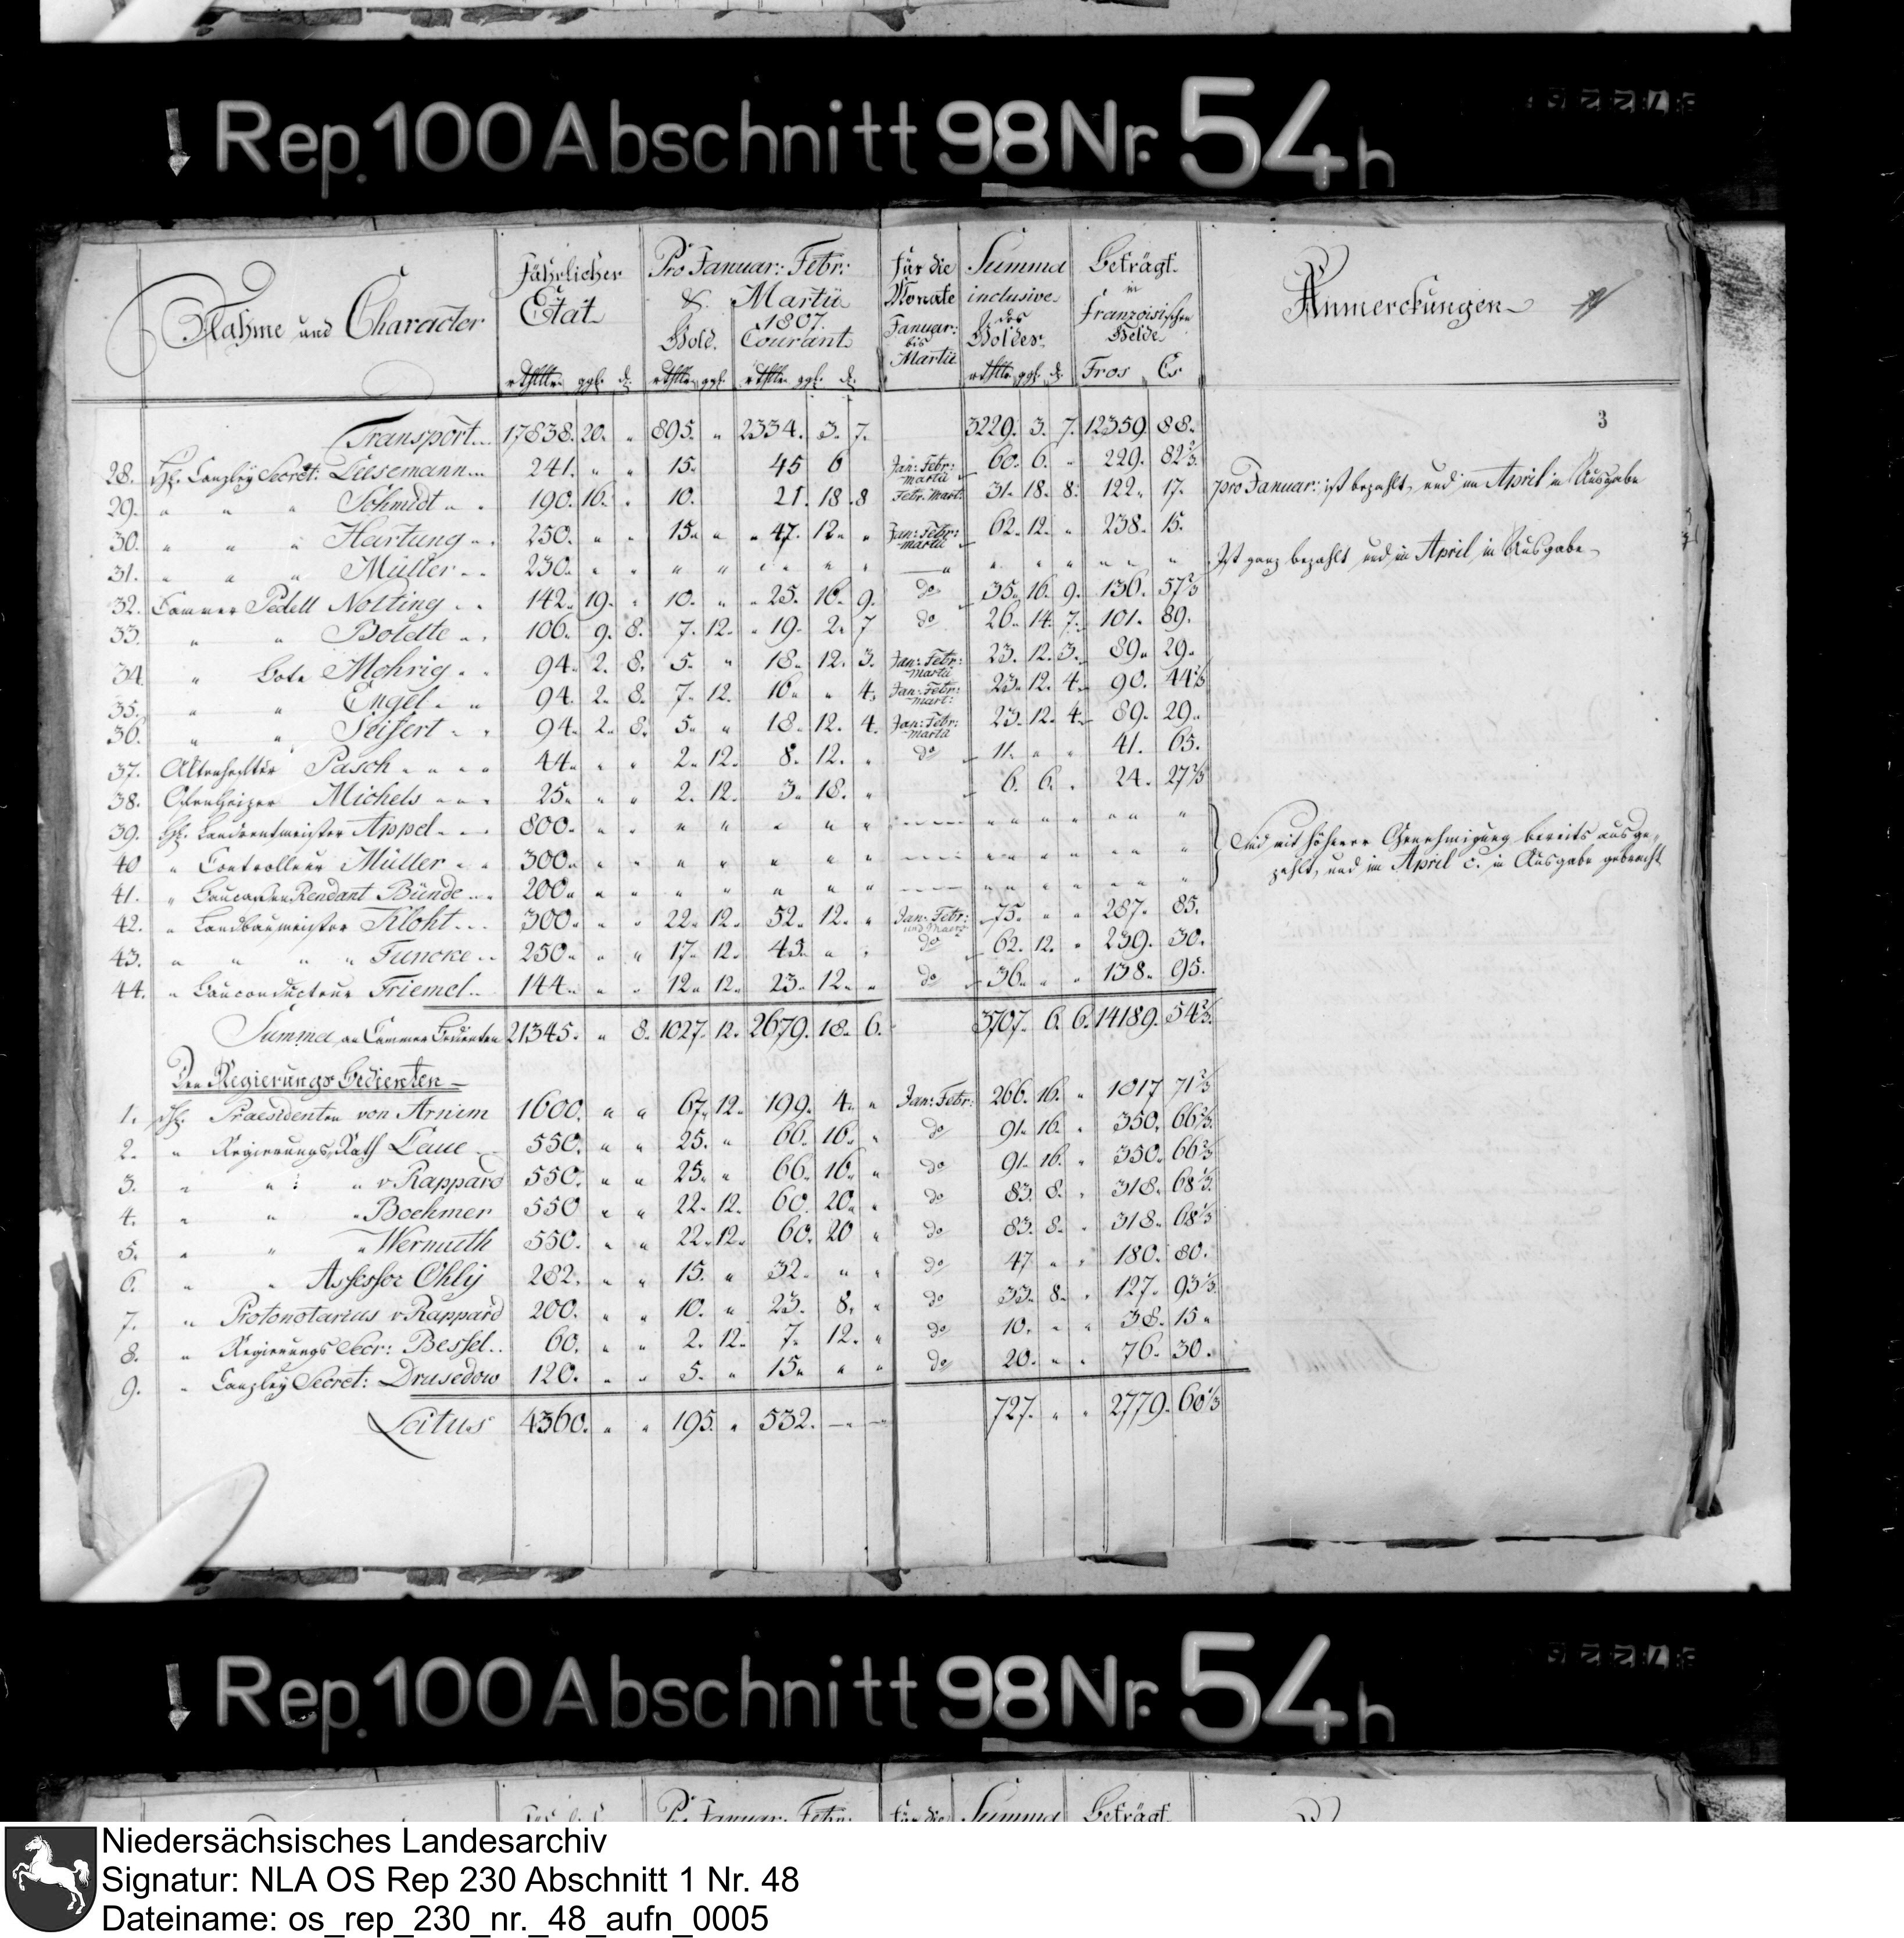 Rep. 100 Abschnitt 98 Nr. 54h
Nahme und Character
Jährlicher Etat
rthlr. ggl. d.
Pro Januar: Febr: & Martii 1807.
Gold. Courant
rthlr. ggl. rthlr. ggl. d.
für die Monate Januar: bis Martii
Summa inclusive des Goldes
rthlr. ggl. d.
Beträgt in französischem Gelde
Frcs Cs
Anmerckungen
3
Transport... 17838. 20. " 895. " 2334. 3. 7. 3229. 3. 7. 12359. 88.
28. H. Canzley Secret: Leesemann... 241. " " 15. 45 6 Jan: Febr: martii 60. 6. " 229. 82 2/3.
29. " " " Schmidt 190. 16. " 10. 21. 18. 8 Febr. Mart: 31. 18. 8. 122. 17. pro Januar: ist bezahlt, und im April in Ausgabe
30. " " " Hartung 250. " " 15. " 47. 12. " Jan: Febr: martii 62. 12. " 238. 15.
31. " " " Müller 230. " " " " " " " " " " " " " Ist ganz bezahlt und im April in Ausgabe
32. Cammer Pedell Nolting 142. 19. " 10. " 25. 16. 9. do 35. 16. 9. 136. 57 2/3
33. " " Boldte 106. 9. 8. 7. 12. 19. 2. 7 do 26. 14. 7. 101. 89.
34. " Bote Mohrig 94. 2. 8. 5. " 18. 12. 3. Jan: Febr: Martii 23. 12. 3. 89. 29.
35. " " Engel 94. 2. 8. 7. 12. 16. " 4. Jan: Febr: Mart: 23. 12. 4. 90. 44 2/3
36. " " Seifert 94. 2. 8. 5. " 18. 12. 4. Jan: Febr: martii 23. 12. 4. 89. 29.
37. Aktenhefter Pasch 44. " " 2. 12. 8. 12. " do 11. " " 41. 65.
38. Ofenheizer Michels 25. " " 2. 12. 3. 18. " 6. 6. " 24. 27 2/3
39. H. Landrentmeister Appel 800. " " " " " " " " " " " " "
40 " Controlleur Müller 300. " " " " " " " " " " " " "
Sind mit höherer Genehmigung bereits ausge-
zahlt, und im April c. in Ausgabe gebracht
41. " Baucassen Rendant Bünde 200. " " " " " " " " " " " " "
42. " Landbaumeister Kloht 300. " " 22. 12. 52. 12. " Jan: Febr: und Maerz 75. " " 287. 85.
43. " " " " Funcke 250. " " 17. 12. 45. " " do 62. 12. " 239. 30.
44. " Bauconducteur Friemel 144. " " 12. 12. 23. 12. " do 36. " " 138. 95.
Summa an Cammer Bedienten 21345. " 8. 1027. 12. 2679. 18. 6. 3707. 6. 6. 14189. 54 2/3.
Den Regierungs Bedienten
1. H. Praesidenten von Arnim 1600. " " 67. 12. 199. 4. " Jan: Febr: 266. 16. " 1017 71 2/3
2. " Regierungs Rath Laue 550. " " 25. " 66. 16. " do 91. 16. " 350. 66 2/3.
3. " " " v Rappard 550. " " 25. " 66. 16. " do 91. 16. " 350. 66 2/3
4. " " " Boehmer 550 " " 22. 12. 60. 20. " do 83. 8. " 318. 68 1/3.
5. " " " Wernuth 550. " " 22. 12. 60. 20 " do 83. 8. " 318. 68 1/3
6. " " Assessor Ohly 282. " " 15. " 32. " " do 47 " " 180. 80.
7. " Protonotarius v Rappard 200. " " 10. " 23. 8. " do 33. 8. " 127. 93 1/3
8. " Regierungs Secr: Bessel 60. " " 2. 12. 7. 12. " do 10. " " 38. 15
9. " Canzley Secret: Drusedow 120. " " 5. " 15. " " do 20. " " 76. 30.
Latus 4360. " " 195. " 532. — — 727. " " 2779. 60 1/3
Rep. 100 Abschnitt 98 Nr. 54h
Pro Januar: Febr: für die Summa Beträgt
Niedersächsisches Landesarchiv
Signatur: NLA OS Rep 230 Abschnitt 1 Nr. 48
Dateiname: os_rep_230_nr._48_aufn_0005